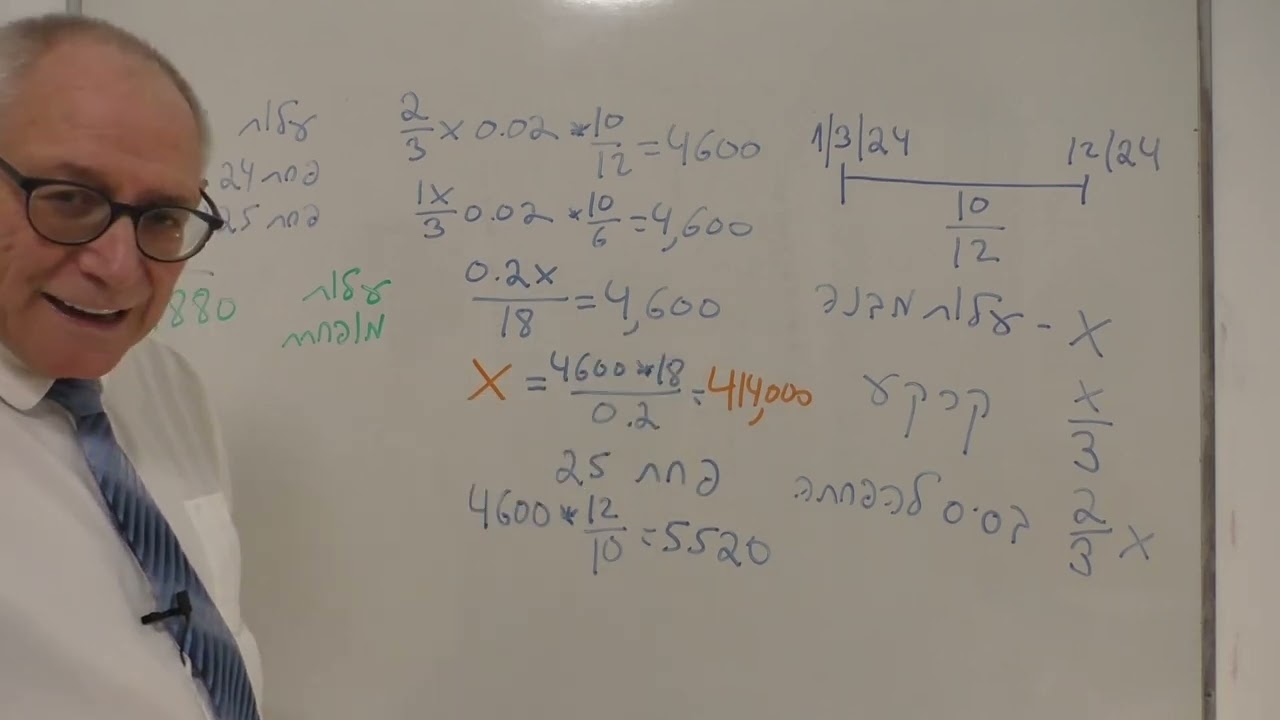 1/3/24 12/24
10/12
עלות מבנה - X
קרקע X/3
בסיס להפחתה 2/3 X
2/3 X 0.02 * 10/12 = 4600
1X/3 0.02 * 10/6 = 4,600
0.2X/18 = 4,600
X = 4600*18/0.2 = 414,000
פחת 25
4600 * 12/10 = 5520
עלות
פחת 24
פחת 25
עלות 880
מופחתת